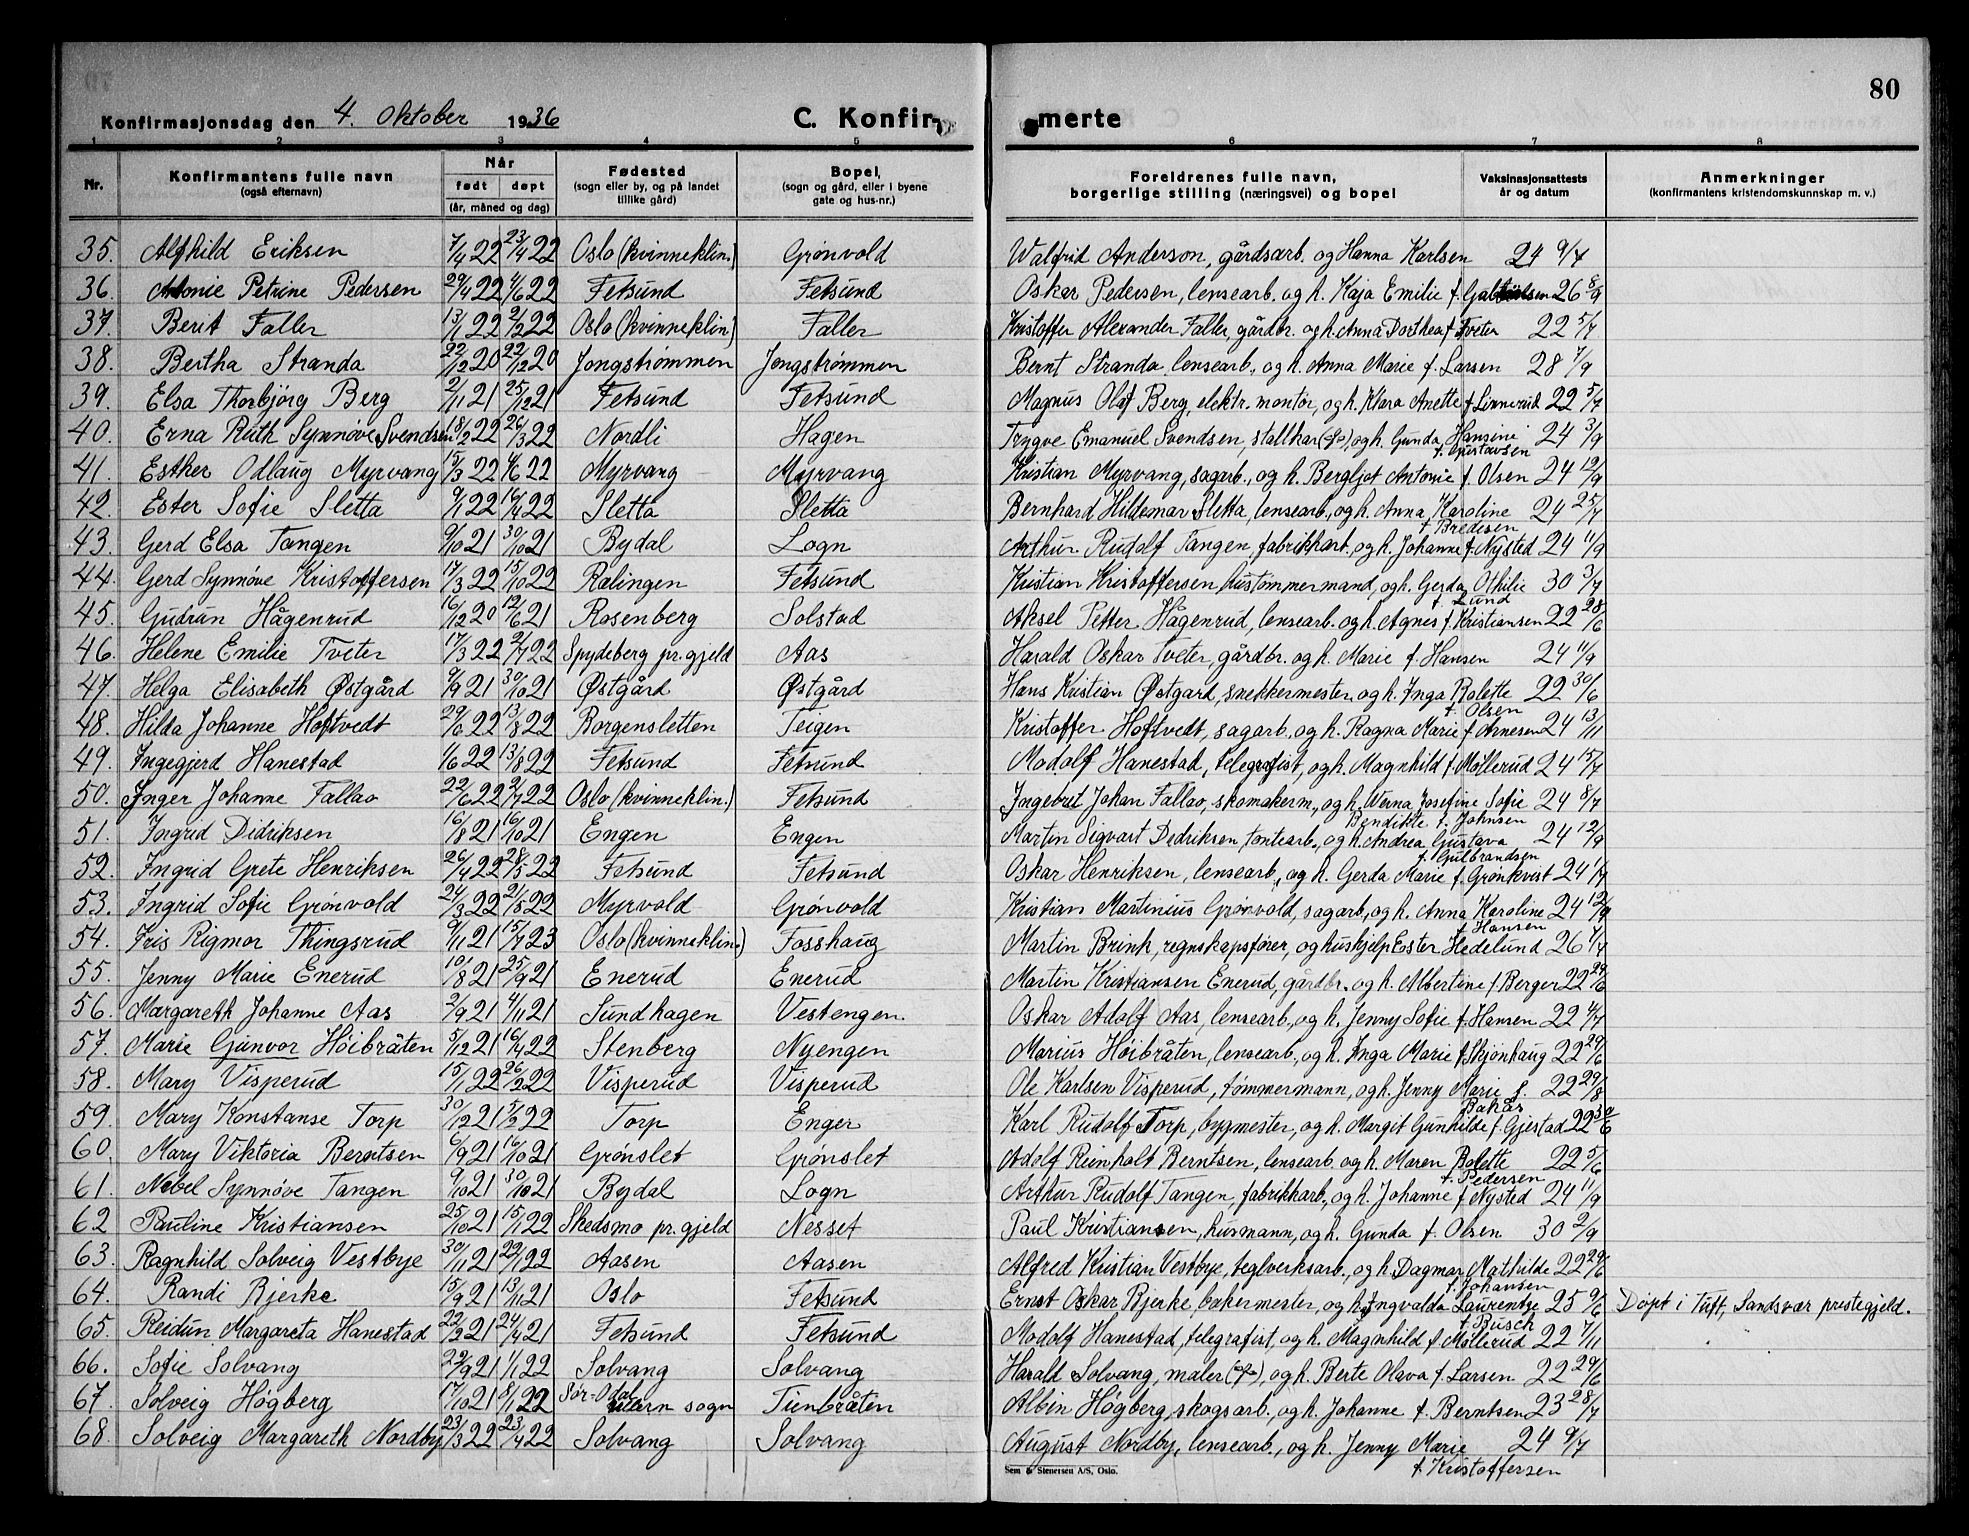 80
Konfirmasjonsdag den 4. Oktober 1936 C. Konfir- merte
1 2 3 4 5 6 7 8
Nr. Konfirmantens fulle navn (også efternavn) Når født døpt (år, måned og dag) Fødested (sogn eller by, og på landet tillike gård) Bopel (sogn og gård, eller i byene gate og hus-nr.) Foreldrenes fulle navn, borgerlige stilling (næringsvei) og bopel Vaksinasjonsattests år og datum Anmerkninger (konfirmantens kristendomskunnskap m. v.)
35. Alfhild Eriksen 7/4 22 23/4 22 Oslo (kvinneklin.) Grønvold Walfrid Anderson, gårdsarb. og Hanna Karlsen 24 9/7
36. Antonie Petrine Pedersen 29/4 22 4/6 22 Fetsund Fetsund Oskar Pedersen, lensearb. og h. Kaja Emilie f. 26 8/9
37. Berit Faller 13/1 22 2/2 22 Oslo (kvinneklin.) Faller Kristoffer Alexander Faller, gårdbr. og h. Anna Dorthea f. Tveter 22 5/7
38. Bertha Stranda 22/12 20 22/12 20 Jongstrømmen Jongstrømmen Bernt Stranda, lensearb., og h. Anna Marie f. Larsen 28 7/9
39. Elsa Thorbjörg Berg 2/11 21 25/12 21 Fetsund Fetsund Magnus Olaf Berg, elektr. montør, og h. Klara Anette f. Linnerud 22 5/7
40. Erna Ruth Synnøve Svendsen 18/2 22 26/3 22 Nordli Hagen Trygve Emanuel Svendsen, stallkar, og h. Gunda Hansine f. Gustavsen 24 3/9
41. Esther Odlaug Myrvang 15/3 22 4/6 22 Myrvang Myrvang Kristian Myrvang, sagarb., og h. Bergljot Antonie f. Olsen 24 12/9
42. Ester Sofie Sletta 9/1 22 16/4 22 Sletta Sletta Bernhard Hildemar Sletta, lensearb., og h. Anna Karoline f. Bredesen 24 25/7
43. Gerd Elsa Tangen 9/10 21 30/10 21 Bydal Logn Arthur Rudolf Tangen, fabrikkarb. og h. Johanne f. Nysted 24 11/9
44. Gerd Synnöve Kristoffersen 17/3 22 15/10 22 Rælingen Fetsund Kristian Kristoffersen, hustømmermand, og h. Gerda Othilie f. Lund 30 3/7
45. Gudrun Hågenrud 16/12 20 12/6 21 Rosenberg Solstad Aksel Petter Hågenrud, lensearb. og h. Agnes f. Kristiansen 22 28/6
46. Helene Emilie Tveter 17/3 22 2/7 22 Spydeberg pr.gjeld Aas Harald Oskar Tveter, gårdbr. og h. Marie f. Hansen 24 11/9
47. Helga Elisabeth Østgård 9/9 21 30/10 21 Østgård Østgård Hans Kristian Østgard, snekkermester, og h. Inga Bolette f. Olsen 22 30/6
48. Hilda Johanne Hoftvedt 29/6 22 13/8 22 Borgensletten Teigen Kristoffer Hoftvedt, sagarb., og h. Ragna Marie f. Arnesen 24 13/11
49. Ingegjerd Hanestad 1/6 22 13/8 22 Fetsund Fetsund Modolf Hanestad, telegrafist, og h. Magnhild f. Møllerud 24 15/7
50. Inger Johanne Fallao 22/6 22 2/7 22 Oslo (kvinneklin.) Fetsund Ingebret Johan Fallao, skomakerm., og h. Werna Josefine Sofie Bendikte f. Johnsen 24 8/7
51. Ingrid Didriksen 16/8 21 16/10 21 Engen Engen Martin Sigvart Dedriksen, tomtearb., og h. Andrea Gustava f. Gulbrandsen 24 12/9
52. Ingrid Grete Henriksen 26/4 22 28/5 22 Fetsund Fetsund Oskar Henriksen, lensearb., og h. Gerda Marie f. Grönkvist 24 1/7
53. Ingrid Sofie Grönvold 24/3 22 21/5 22 Myrvold Grönvold Kristian Martinius Grönvold, sagarb., og h. Anna Karoline f. Hansen 24 12/9
54. Iris Rigmor Thingsrud 9/11 21 15/7 23 Oslo (kvinneklin.) Fosshaug Martin Brink, regnskapsfører, og hushjelp Ester Hedelund 26 7/7
55. Jenny Marie Enerud 10/8 21 25/9 21 Enerud Enerud Martin Kristiansen Enerud, gårdbr. og h. Albertine f. Berger 22 29/6
56. Margareth Johanne Aas 2/9 21 4/11 21 Sundhagen Vestengen. Oskar Adolf Aas, lensearb., og h. Jenny Sofie f. Hansen 22 4/7
57. Marie Gunvor Höibråten 5/12 21 16/4 22 Stenberg Nyengen Marius Höibråten, lensearb., og h. Inga Marie f. Skjönhaug 22 29/6
58. Mary Visperud 15/1 22 26/2 22 Visperud Visperud Ole Karlsen Visperud, tømmermann, og h. Jenny Marie f. Bakås 22 29/8
59. Mary Konstanse Torp 30/12 21 5/2 22 Torp Enger Karl Rudolf Torp, bygmester, og h. Margit Gunhilde f. Gjestad 22 30/6
60. Mary Viktoria Berntsen 6/9 21 16/10 21 Grønslet Grønslet Adolf Reinholt Berntsen, lensearb. og h. Maren Bolette f. Pedersen 22 5/6
61. Nebel Synnöve Tangen 9/10 21 30/10 21 Bydal Logn Arthur Rudolf Tangen, fabrikkarb., og h. Johanne f. Nysted 24 11/9
62 Pauline Kristiansen 25/10 21 15/1 22 Skedsmo pr.gjeld Nesset Paul Kristiansen, husmann, og h. Gunda f. Olsen 30 2/9
63. Ragnhild Solveig Vestbye 30/11 21 22/1 22 Aasen Aasen Alfred Kristian Vestbye, teglverksarb., og h. Dagmar Mathilde f. Johansen 22 29/6
64. Randi Bjerke 15/9 21 13/11 21 Oslo Fetsund Ernst Oskar Bjerke, bakermester, og h. Ingvalda Laurentze f. Busch 25 9/6 Døpt i Tuft, Sandsvær prestegjeld.
65. Reidun Margareta Hanestad 22/2 21 24/4 21 Fetsund Fetsund Modolf Hanestad, telegrafist, og h. Magnhild f. Møllerud 22 7/11
66. Sofie Solvang 29/9 21 1/1 22 Solvang Solvang Harald Solvang, maler, og h. Berte Olava f. Larsen 22 29/6
67. Solveig Høgberg 17/10 21 8/1 22 Sør-Odal Ullern sogn Tienbråten Albin Høgberg, skogsarb., og h. Johanne f. Berntsen 23 28/7
68. Solveig Margareth Nordby 23/3 22 23/4 22 Solvang Solvang August Nordby, lensearb., og h. Jenny Marie f. Kristoffersen 24 9/7
Sem & Stenersen A/S, Oslo.